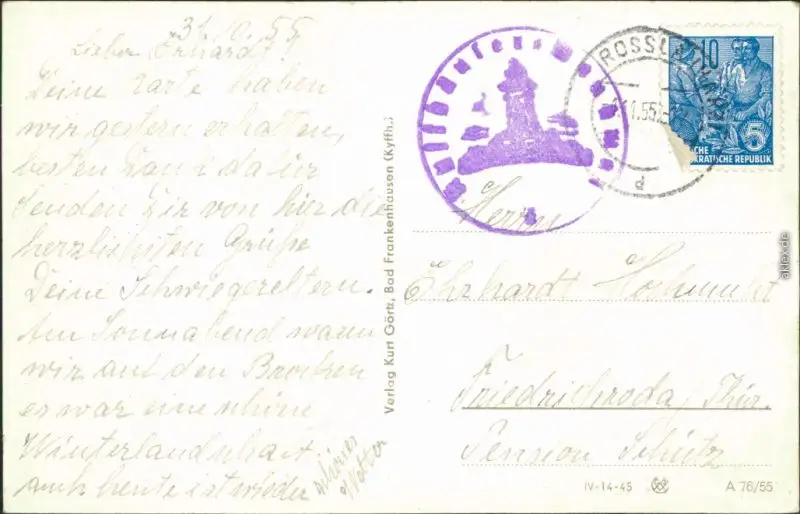 31.10.55
Lieber Erhardt!
Deine Karte haben
wir gestern erhalten,
besten Dank dafür
senden Dir von hier die
herzlichsten Grüße
Deine Schwiegereltern.
Am Sonnabend waren
wir auf den Brocken
es war eine schöne
Winterlandschaft.
auch heute ist wieder
schönes
Wetter
Verlag Kurt Görtz, Bad Frankenhausen (Kyffh.)
Kyffhäuser-Denkmal
ROSSLA
.55
d
10
5
CHE
KRATISCHE REPUBLIK
Herrn
Ehrhardt
Friedrichroda, Thür.
Pension Schütz
IV-14-45
A 76/55
aklex.de